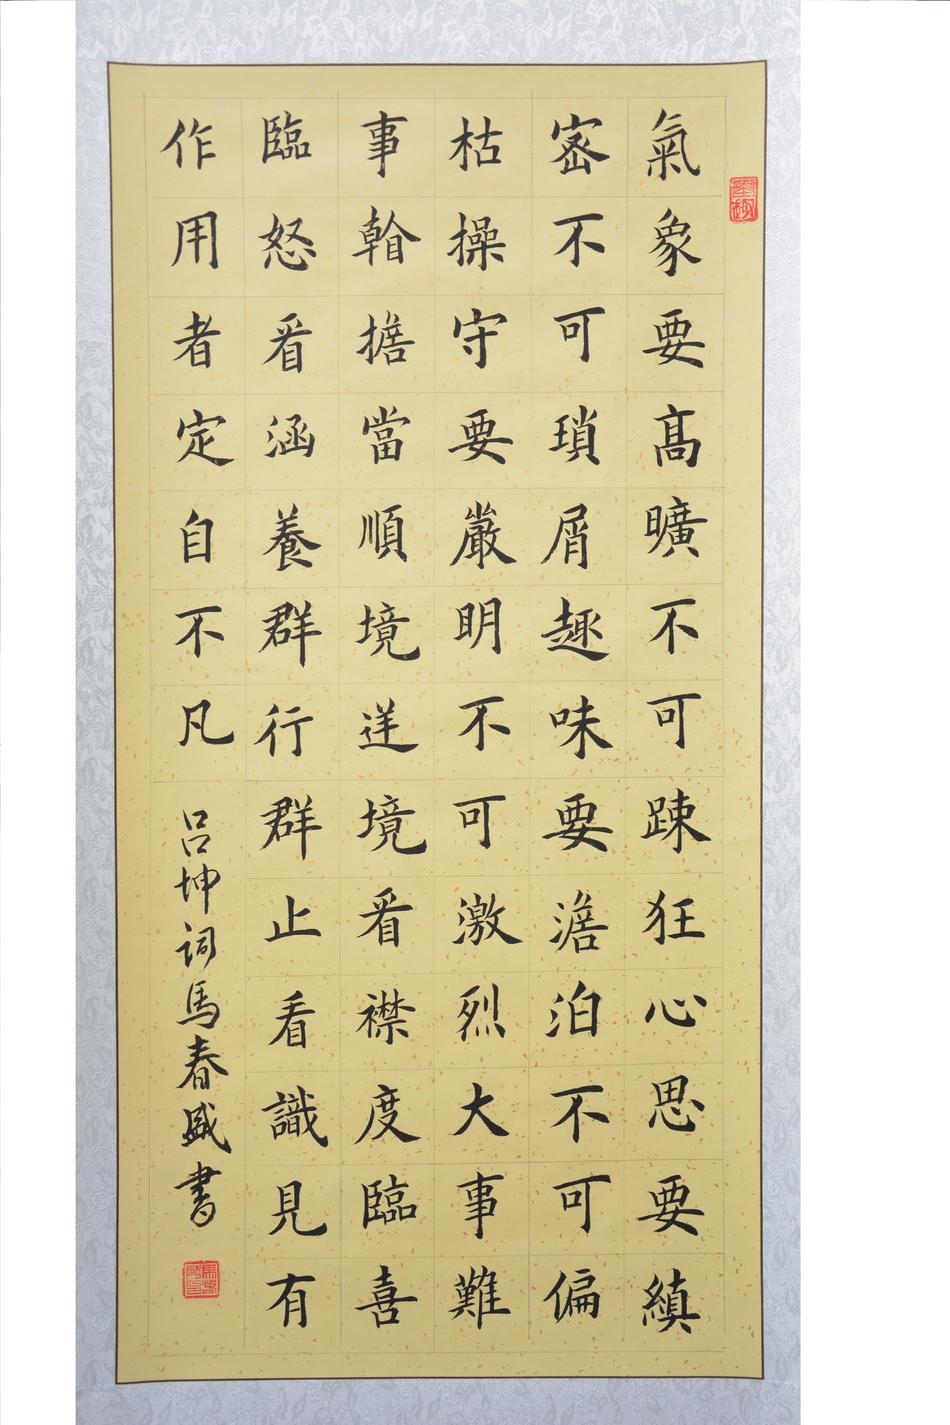 氣象要高曠不可踈狂心思要縝
宻不可瑣屑趣味要澹泊不可偏
枯操守要嚴明不可激烈大事難
事㫿擔當順境逆境看襟度臨喜
臨怒看涵養群行群止看識見有
作用者定自不凡
呂坤詞馬春盛書